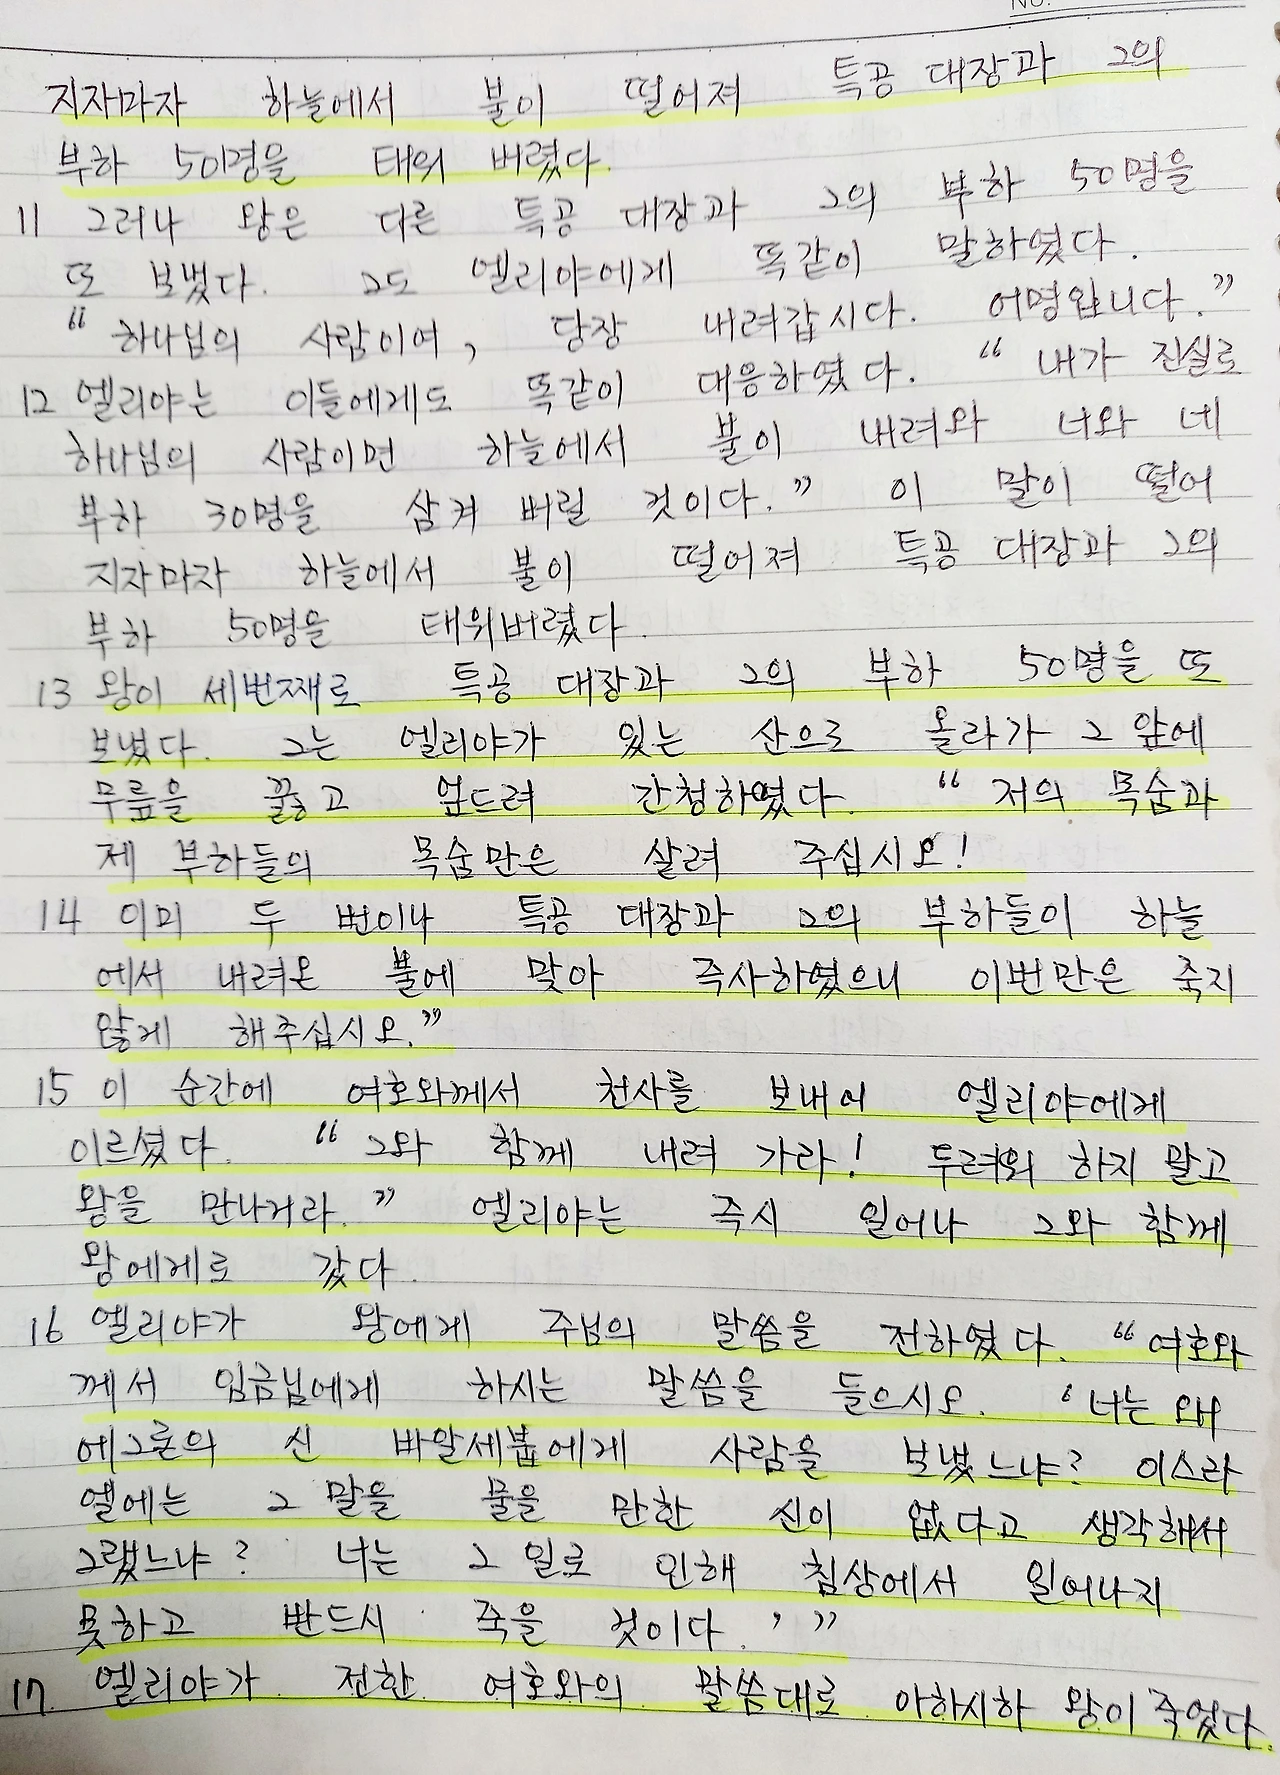 No.
지자마자 하늘에서 불이 떨어져 특공 대장과 그의
부하 50명을 태워 버렸다.
11 그러나 왕은 다른 특공 대장과 그의 부하 50명을
또 보냈다. 그도 엘리야에게 똑같이 말하였다.
“하나님의 사람이여, 당장 내려갑시다. 어명입니다.”
12 엘리야는 이들에게도 똑같이 대응하였다. “내가 진실로
하나님의 사람이면 하늘에서 불이 내려와 너와 네
부하 30명을 삼켜 버릴 것이다.” 이 말이 떨어
지자마자 하늘에서 불이 떨어져 특공 대장과 그의
부하 50명을 태워버렸다.
13 왕이 세번째로 특공 대장과 그의 부하 50명을 또
보냈다. 그는 엘리야가 있는 산으로 올라가 그 앞에
무릎을 꿇고 엎드려 간청하였다. “저의 목숨과
제 부하들의 목숨만은 살려 주십시오!
14 이미 두 번이나 특공 대장과 그의 부하들이 하늘
에서 내려온 불에 맞아 즉사하였으니 이번만은 죽지
않게 해주십시오.”
15 이 순간에 여호와께서 천사를 보내어 엘리야에게
이르셨다. “그와 함께 내려 가라! 두려워 하지 말고
왕을 만나거라.” 엘리야는 즉시 일어나 그와 함께
왕에게로 갔다.
16 엘리야가 왕에게 주님의 말씀을 전하였다. “여호와
께서 임금님에게 하시는 말씀을 들으시오. ‘너는 왜
에그론의 신 바알세붑에게 사람을 보냈느냐? 이스라
엘에는 그 말을 물을 만한 신이 없다고 생각해서
그랬느냐? 너는 그 일로 인해 침상에서 일어나지
못하고 반드시 죽을 것이다.’”
17. 엘리야가 전한 여호와의 말씀대로 아하시하 왕이 죽었다.